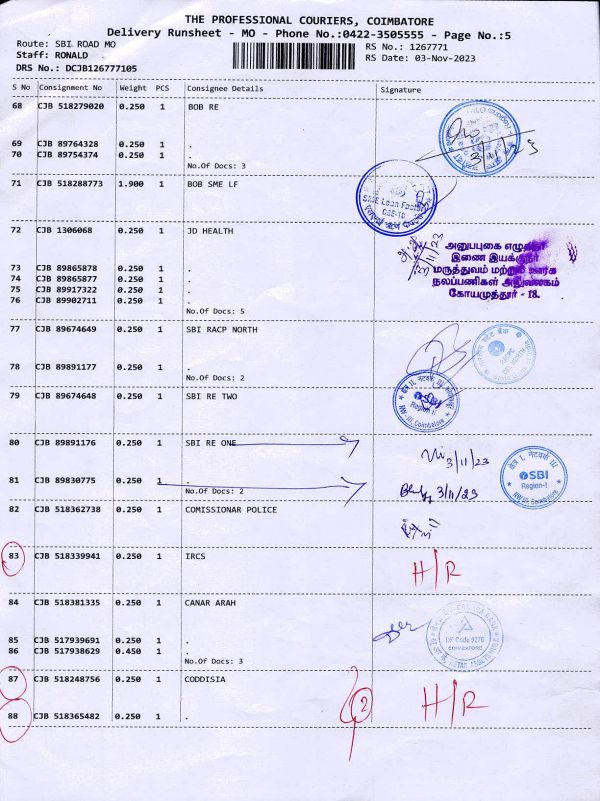 THE PROFESSIONAL COURIERS, COIMBATORE
Delivery Runsheet - MO - Phone No.:0422-3505555 - Page No.:5
Route: SBI ROAD MO
RS No.: 1267771
Staff: RONALD
RS Date: 03-Nov-2023
DRS No.: DCJB126777105
S No Consignment No Weight PCS Consignee Details Signature
68 CJB 518279020 0.250 1 BOB RE
3/11/23
69 CJB 89764328 0.250 1 .
70 CJB 89754374 0.250 1 .
No.Of Docs: 3
71 CJB 518288773 1.900 1 BOB SME LF
SME Loan Factory
CBE-18
72 CJB 1306068 0.250 1 JD HEALTH
3/11/23
அனுபபுகை எழுதிநர்
இணை இயக்குநர்
மருத்துவம் மற்றும் ஊரக
நலப்பணிகள் அலுவலகம்
கோயமுத்தூர் - 18.
73 CJB 89865878 0.250 1 .
74 CJB 89865877 0.250 1 .
75 CJB 89917322 0.250 1 .
76 CJB 89902711 0.250 1 .
No.Of Docs: 5
77 CJB 89674649 0.250 1 SBI RACP NORTH
78 CJB 89891177 0.250 1 .
No.Of Docs: 2
79 CJB 89674648 0.250 1 SBI RE TWO
SBI
Region-II
NW-III, Coimbatore
80 CJB 89891176 0.250 1 SBI RE ONE
3/11/23
क्षेत्र I, नेटवर्क III
SBI
Region-I
NW-III, Coimbatore
81 CJB 89830775 0.250 1 .
No.Of Docs: 2
3/11/23
82 CJB 518362738 0.250 1 COMISSIONAR POLICE
83 CJB 518339941 0.250 1 IRCS
H/R
84 CJB 518381335 0.250 1 CANAR ARAH
COIMBATORE
85 CJB 517939691 0.250 1 .
86 CJB 517938629 0.450 1 .
No.Of Docs: 3
87 CJB 518248756 0.250 1 CODDISIA
2
H/R
88 CJB 518365482 0.250 1 .